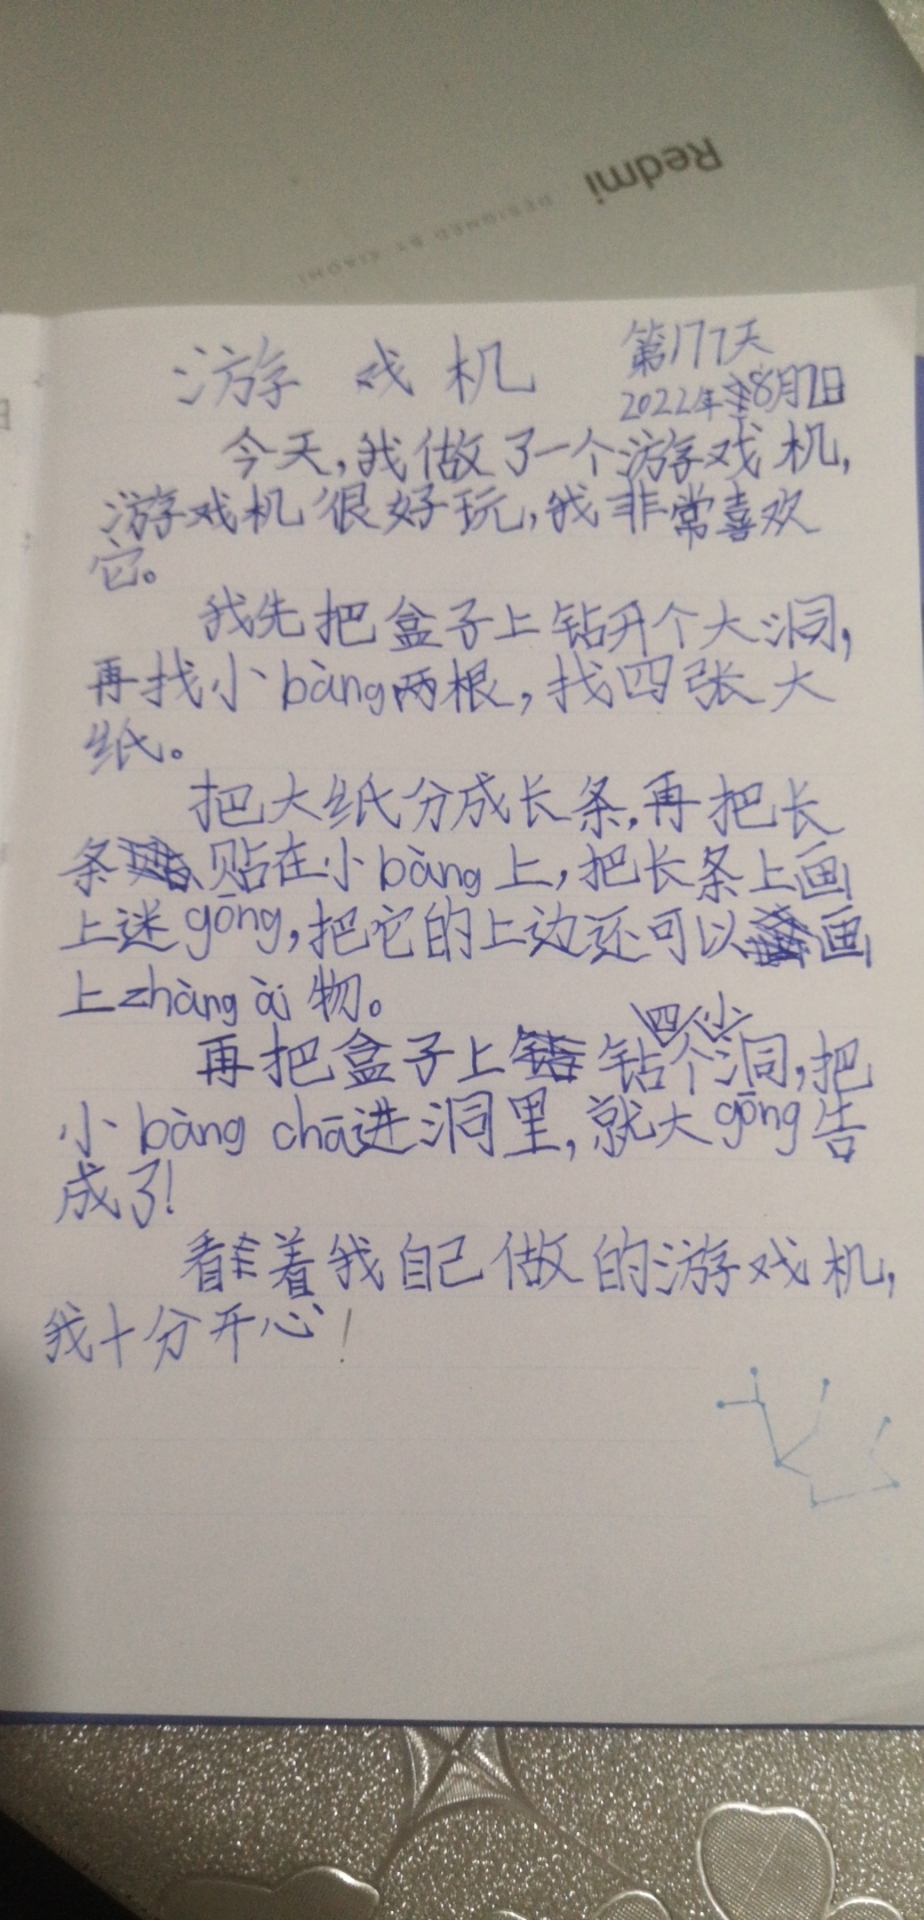 Redmi
DESIGNED BY XIAOMI
游戏机
第177天
2022年8月7日
今天,我做了一个游戏机,
游戏机很好玩,我非常喜欢
它。
我先把盒子上钻开个大洞,
再找小bàng两根,找四张大
纸。
把大纸分成长条,再把长
条贴在小bàng上,把长条上画
上迷gōng,把它的上边还可以画
上zhàng ài物。
再把盒子上钻四个小洞,把
小bàng chā进洞里,就大gōng告
成了!
看着我自己做的游戏机,
我十分开心!